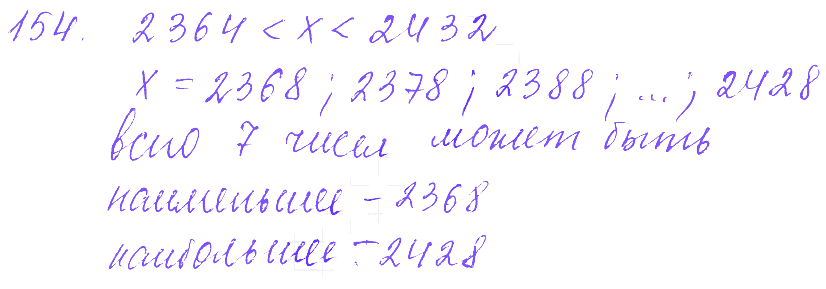 154. 2364 < x < 2432
x = 2368 ; 2378 ; 2388 ; ... ; 2428
всего 7 чисел может быть
наименьшее - 2368
наибольшее - 2428